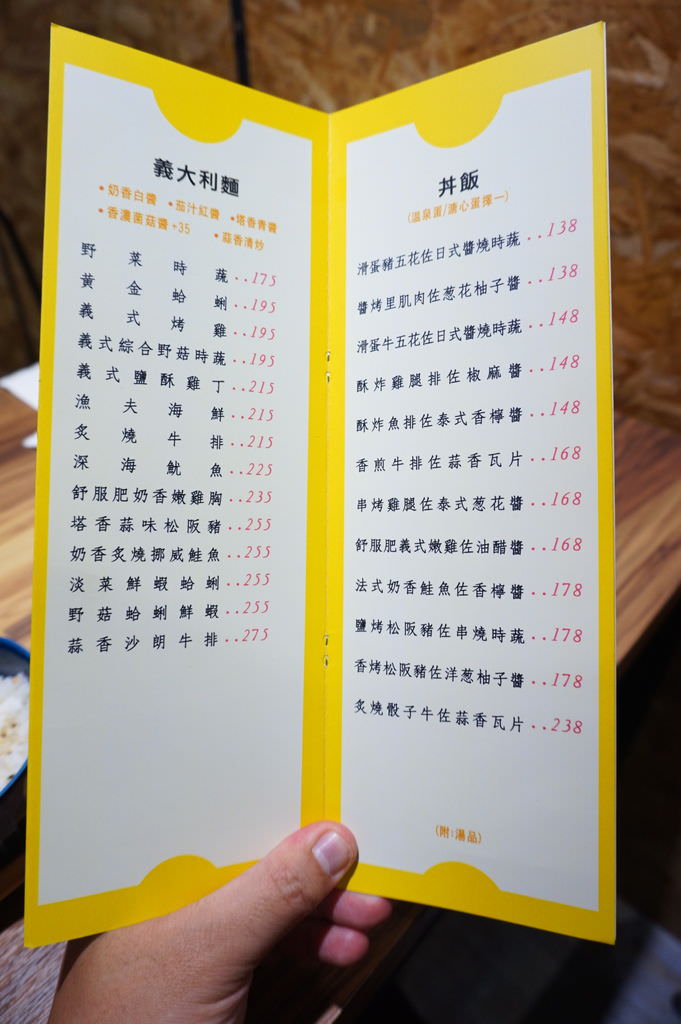 義大利麵
•奶香白醬 •茄汁紅醬 •塔香青醬
•香濃菌菇醬+35 •蒜香清炒
野菜時蔬..175
黃金蛤蜊..195
義式烤雞..195
義式綜合野菇時蔬..195
義式鹽酥雞丁..215
漁夫海鮮..215
炙燒牛排..215
深海魷魚..225
舒服肥奶香嫩雞胸..235
塔香蒜味松阪豬..255
奶香炙燒挪威鮭魚..255
淡菜鮮蝦蛤蜊..255
野菇蛤蜊鮮蝦..255
蒜香沙朗牛排..275
丼飯
(溫泉蛋/溏心蛋擇一)
滑蛋豬五花佐日式醬燒時蔬..138
醬烤里肌肉佐葱花柚子醬..138
滑蛋牛五花佐日式醬燒時蔬..148
酥炸雞腿排佐椒麻醬..148
酥炸魚排佐泰式香檸醬..148
香煎牛排佐蒜香瓦片..168
串烤雞腿佐泰式葱花醬..168
舒服肥義式嫩雞佐油醋醬..168
法式奶香鮭魚佐香檸醬..178
鹽烤松阪豬佐串燒時蔬..178
香烤松阪豬佐洋葱柚子醬..178
炙燒骰子牛佐蒜香瓦片..238
(附:湯品)